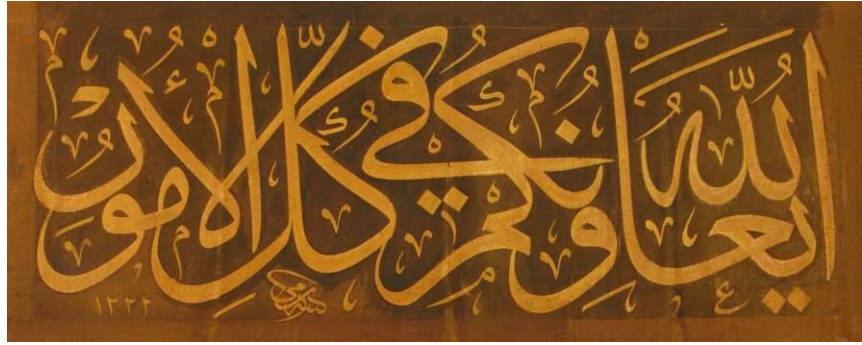 الله يعاونكم في كل الأمور
١٢٢٢